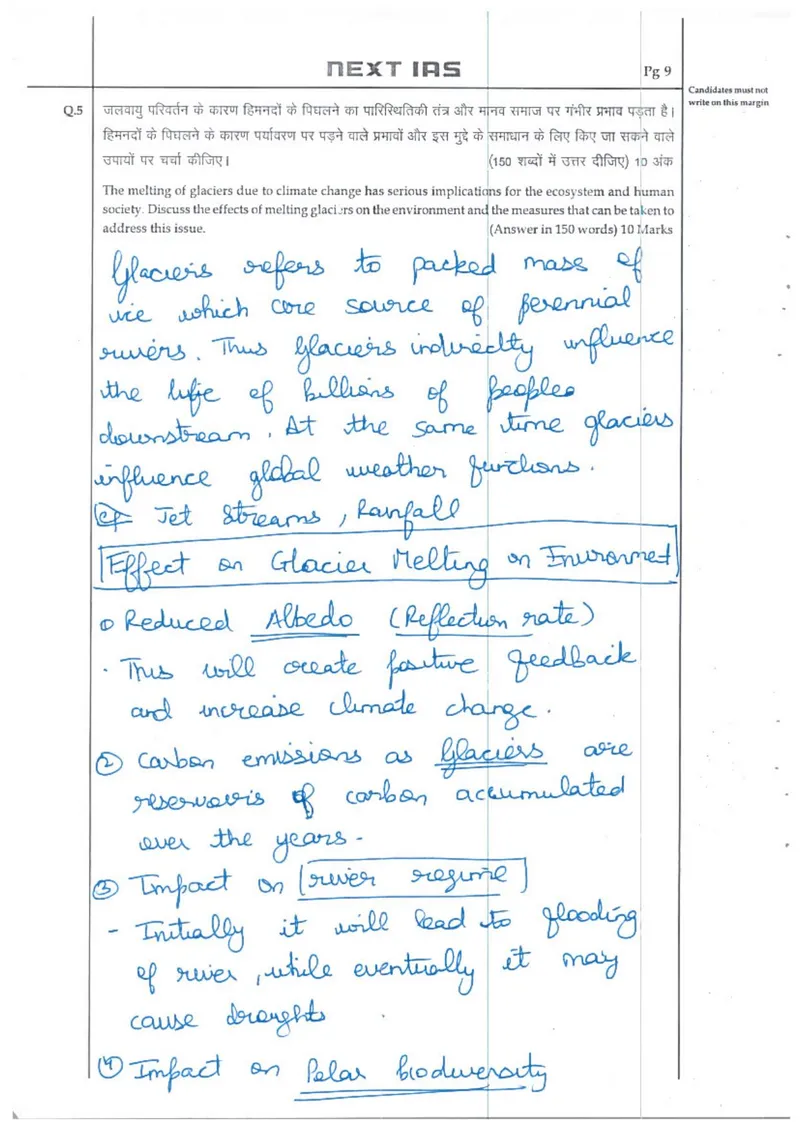 NEXT IAS
Pg 9
Candidates must not
write on this margin
Q.5 जलवायु परिवर्तन के कारण हिमनदों के पिघलने का पारिस्थितिकी तंत्र और मानव समाज पर गंभीर प्रभाव पड़ता है।
हिमनदों के पिघलने के कारण पर्यावरण पर पड़ने वाले प्रभावों और इस मुद्दे के समाधान के लिए किए जा सकने वाले
उपायों पर चर्चा कीजिए। (150 शब्दों में उत्तर दीजिए) 10 अंक
The melting of glaciers due to climate change has serious implications for the ecosystem and human
society. Discuss the effects of melting glaciers on the environment and the measures that can be taken to
address this issue. (Answer in 150 words) 10 Marks
Glaciers refers to packed mass of
ice which are source of perennial
rivers. Thus Glaciers indirectly influence
the life of billions of peoples
downstream. At the same time glaciers
influence global weather functions.
Jet Streams, Rainfall
Effect on Glacier Melting on Environmet
① Reduced Albedo (Reflection rate)
· This will create positive feedback
and increase climate change.
② Carbon emissions as Glaciers are
reservoris of carbon accumulated
over the years -
③ Impact on river regime
- Initially it will lead to flooding
of river, while eventually it may
cause draughts
④ Impact on Polar biodiversity